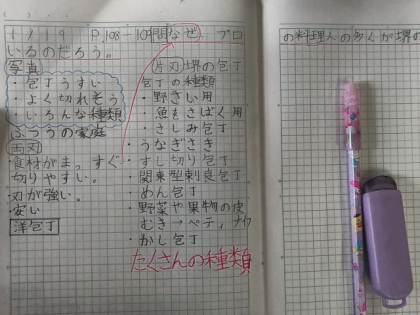 11/19 P.108 109 問なぜ、プロ
いるのだろう。
写真
・包丁うすい
・よく切れそう
・いろんな種類
ふつうの家庭
両刃
・食材がまっすぐ
切りやすい。
・刃が強い。
・安い
洋包丁
片刃堺の包丁
包丁の種類
・野さい用
・魚をさばく用
・さしみ包丁
・うなぎさき
・すし切り包丁
・関東型刺身包丁
・めん包丁
・野菜や果物の皮
むき→ペティナイフ
・かし包丁
たくさんの種類
の料理人の多くが堺の